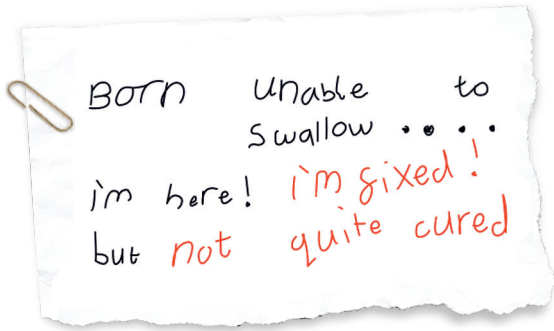 Born unable to
swallow ....
i'm here! i'm fixed!
but not quite cured